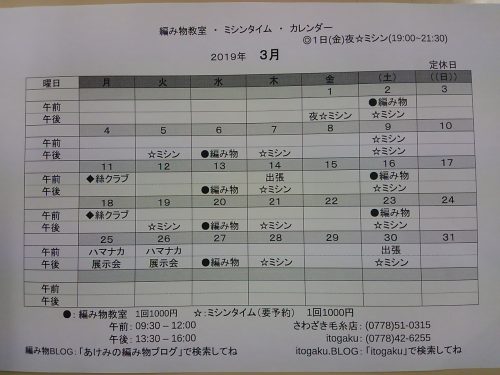 編み物教室 ・ ミシンタイム ・ カレンダー
◎1日(金)夜☆ミシン(19:00~21:30)
2019年 3月
定休日
曜日 月 火 水 木 金 (土) ((日))
1 2 3
午前 ●編み物
午後 夜☆ミシン ☆ミシン
4 5 6 7 8 9 10
午前 ☆ミシン
午後 ☆ミシン ●編み物 ☆ミシン ☆ミシン
11 12 13 14 15 16 17
午前 ◆絲クラブ 出張 ●編み物
午後 ●編み物 ☆ミシン ☆ミシン
18 19 20 21 22 23 24
午前 ◆絲クラブ ●編み物
午後 ☆ミシン ●編み物 ☆ミシン ☆ミシン
25 26 27 28 29 30 31
午前 ハマナカ ハマナカ 出張
午後 展示会 展示会 ●編み物 ☆ミシン ☆ミシン
午前
午後
●: 編み物教室 1回1000円 ☆:ミシンタイム(要予約) 1回1000円
午前:09:30 – 12:00 さわざき毛糸店: (0778)51-0315
午後:13:30 – 16:00 itogaku: (0778)42-6255
編み物BLOG:「あけみの編み物ブログ」で検索してね itogaku.BLOG:「itogaku」で検索してね